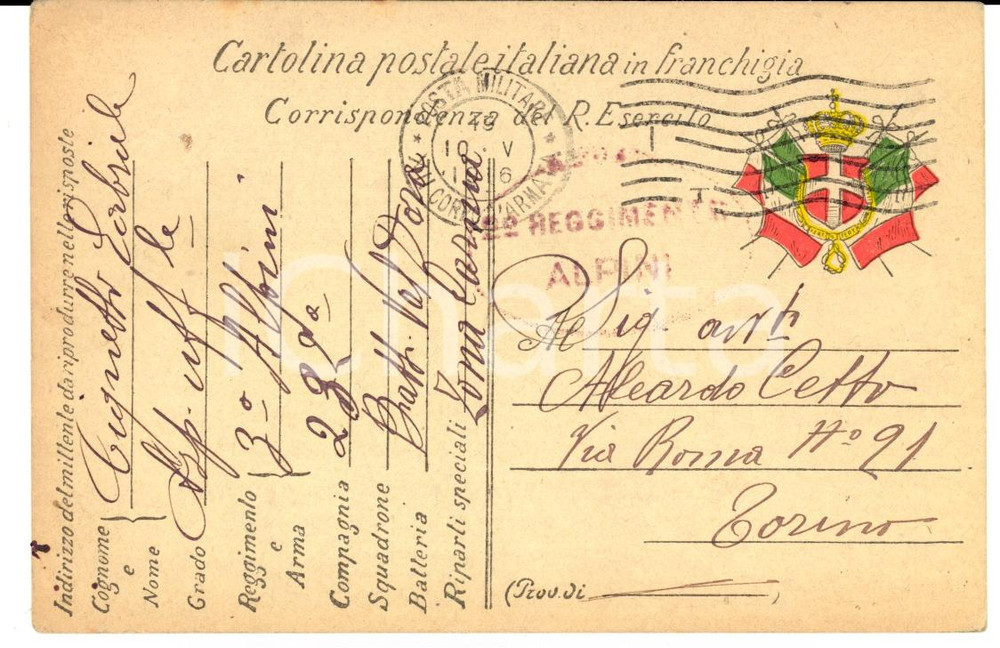 Cartolina postale italiana in franchigia
Corrispondenza del R. Esercito
POSTA MILITARE
10 · V
CORPO D'ARMATA
REGGIMENTO
ALPINI
Al Sig avv
Aleardo Cetto
Via Roma Nº 21
Torino
(Prov. di
Indirizzo del mittente da riprodurre nelle risposte
Cognome e Nome
Cignetto Gabriele
Grado
Asp. uff le
Reggimento e Arma
3º Alpini
Compagnia
282ª
Squadrone
Batteria
Batt. Val Dora
Riparti speciali
Zona Carnia
iCharta